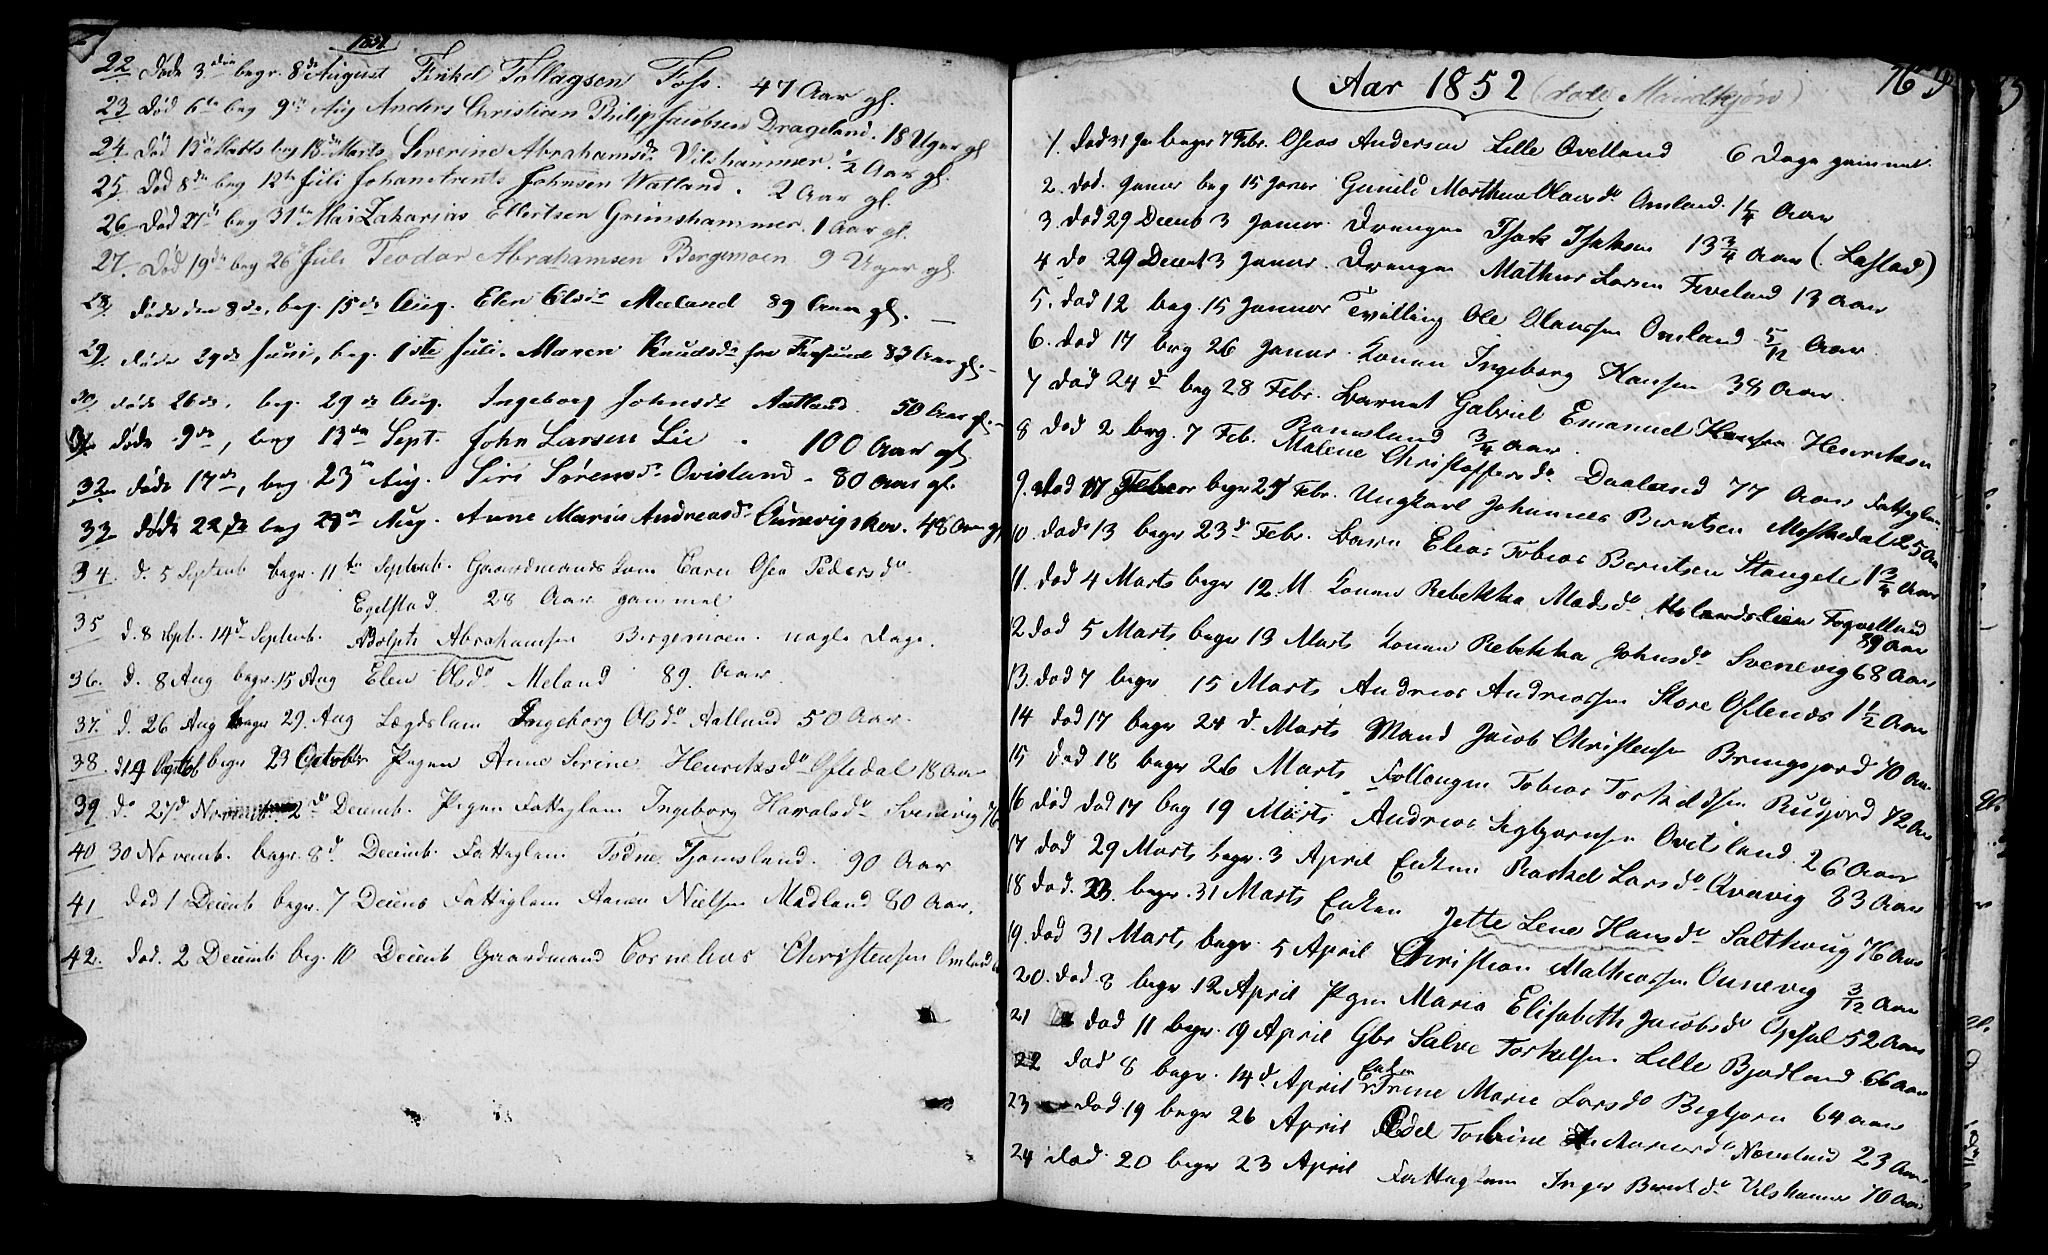 1851
22 Døde 3die begr. 8de August Tinkel Tollagsen Foss. 47 Aar gl.
23 Død 6te beg 9de Aug Anders Christian Philip Jacobsen Drageland. 18 Uger gl
24. Død 13de Marts beg 18de Marts Severine Abrahamsdr Vilshammer. 1/2 Aar gl.
25. Død 8de beg 12te Juli Johan Johnsen Watland. 2 Aar gl.
26 Død 27de beg 31te Mai Zakarias Ellertsen Grimshammer. 1 Aar gl.
27. Død 19de beg 26de Juli Teodor Abrahamsen Bergemoen. 9 Uger gl.
28. døde den 8de, beg. 15de Aug. Elen Olsdr Meeland 89 Aar gl. —
29. døde 29de Juni, beg. 1ste Juli. Maren Knudsdr fra Farsund 83 Aar gl. —
30 døde 26de, beg. 29de Aug. Ingeborg Johnsdr Aatland. 50 Aar gl. —
31. døde 9de, beg 13de Sept. John Larsen Lie . 100 Aar gl
32. døde 17de, beg. 23de Aug. Siri Sørensdr Ovidsland. 80 Aar gl.
33. døde 22de beg 28de Aug. Anne Marie Andreasdr Aunevigskov. 48 Aar gl
34. d. 5 Septemb begr. 11te Septemb. Gaardmands Kone Karen Osea Pedersdr
Egelstad 28 Aar gammel
35 d. 8 Spt. 14de Septemb. Adolph Abrahamsen Bergemoen. nogle Dage.
36. d. 8 Aug begr. 15 Aug Elen Olsdr Meland 89. Aar.
37. d. 26 Aug begr 29. Aug Lægdslem Ingeborg Olsdr Aatland 50 Aar.
38. d19 Octob begr 23 October Pigen Anne Serine Henriksdr Oftedal 18 Aar
39 do 27d Novemb. 2de Decemb. Pigen Fattiglem Ingeborg Haralsdr Svenevig 76
40 30 Novemb. begr. 8d Decemb. Fattiglem Todne Tjomsland. 90 Aar
41 død 1 Decemb begr. 7 Decemb Fattiglem Aanen Nielsen Madland 80 Aar.
42. død. 2 Decemb beg. 10 Decemb Gaardmand Cornelius Christensen Omland
Aar 1852 (døde Mandkjøn) 76
1. død 31 Jan begr 7 Febr. Oseas Andersen Lille Ovelland 6 Dage gammel.
2. død. Januar beg 15 Januar Gunild Marthea Olausdr Omland. 1 1/4 Aar
3. død 29 Decemb 3 Januar. Drengen Isak Isaksen 13 3/4 Aar (Lastad)
4 do 29 Decemb 3 Januar. Drengen Mathias Larsen Fiveland 13 Aar
5. død 12 beg. 15 Januar Tvilling Ole Olaussen Omland 5/12 Aar.
6. død 17 beg 26 Januar. Konen Ingeborg Hansen 38 Aar.
7 død 24d beg 28 Febr. Barnet Gabriel Emanuel Henriksen
Bauesland 3/4 Aar.
8 død 2 beg. 7 Feb. Malene Christoffersdr Daaland 77 Aar Fattiglem
9. død 17 Februar begr 29 Febr. Ungkarl Johannes Berntsen Moskedal 25 Aar
10 døde 13 begr 23d Febr. Barn Elias Tobias Berntsen Stangele 1 3/4 Aar
11. død 4 Marts begr 12. M Konen Rebekka Madsdr Holandslien Fogvelland
89 Aar
12 død 5 Marts begr 13 Marts Konen Rebekka Johnsdr Svenevig 68 Aar
13. død 7 begr 15 Marts Andreas Andreassen Store Oftenæs 1 1/2 Aar
14 død 17 begr 24 d. Marts Mand Jacob Christensen Bringsjord 70 Aar
15 død 18 begr 26 Marts Føllougen Tobias Torkildsen Rusjord 72 Aar
16 død død 17 beg 19 Marts Andreas Sigbjørnsen Ovidsland. 26 Aar
17 død 29 Marts begr. 3 April Enken Rachel Larsdr Qvavig 83 Aar
18 død. 23. begr. 31 Marts Enken Jette Lene Hansdr Salthoug 76 Aar
19. død 31 Marts begr 5 April Christian Mathiassen Ounevig 3/12 Aar
20. død. 8 begr 12 April Pigen Maria Elisabeth Jacobsdr Opsal 52 Aar
21 død 11 begr. 19 April Gbr Salve Torkelsen Lille Bjodland 66 Aar
22 død 8 begr. 14d April Enken Trine Marie Larsdr Begbjørn 64 Aar
23 død 19 begr 26 April Edel Torbine Asmarsdr Næveland 23 Aar
24 død 20 begr 23 April Fattiglem Inger Berntsdr Vilshammer 70 Aar